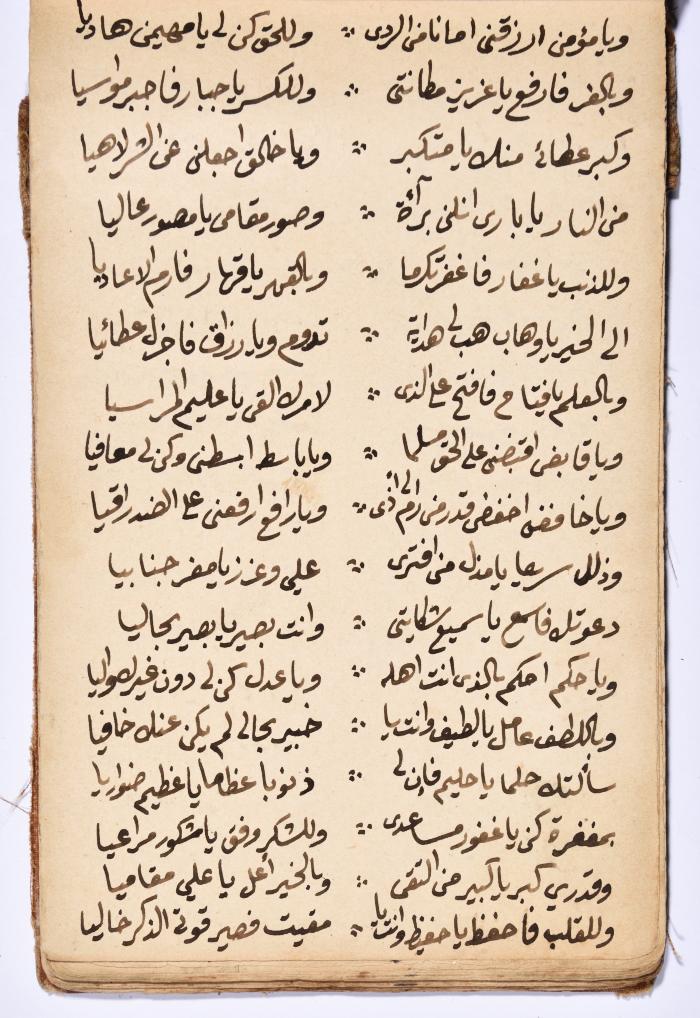 ويا مؤمن ارزقني امانا من الردى ∴ وللحق كن لي يا مهيمن هاديا
وبالعز فارفع يا عزيز مكانتي ∴ وللكسر يا جبار فاجبر مواسيا
وكبر عطائي منك يا متكبر ∴ ويا خالق اجعلني عن الشر لاهيا
من النار يا باري انلني برآءة ∴ وصور مقامي يا مصور عاليا
وللذنب يا غفار فاغفر تكرما ∴ وبالقهر يا قهار فارم الاعاديا
الى الخير يا وهاب هب لي هداية ∴ تدوم ويا رزاق فاجزل عطائيا
وبالعلم يا فتاح فافتح على الذي ∴ لامرك القى يا عليم
ويا قابض اقبضني على الحق مسلما ∴ ويا باسط ابسطني وكن لي معافيا
ويا خافض اخفض قدر من رام لي اذى ∴ ويا رافع ارفعني على الضد راقيا
وذلل سريعا يا مذل من افترى ∴ علي وعزز يا معز جنابيا
دعوتك فاسمع يا سميع شكايتي ∴ وانت بصير يا بصير بحاليا
ويا حكم احكم بالذي انت اهله ∴ ويا عدل كن لي دون غيرك واليا
وباللطف عامل يا لطيف وانت يا ∴ خبير بحالي لم يكن عنك خافيا
سألتك حلما يا حليم فان لي ∴ ذنوبا عظاما يا عظيم ضواريا
بمغفرة كن يا غفور مساعدي ∴ وللشكر وفق يا شكور مراعيا
وقدري كبر يا كبير من التقى ∴ وبالخير أعل يا علي مقاميا
وللقلب فاحفظ يا حفيظ وانت يا ∴ مقيت فصير قوتي الذكر خاليا